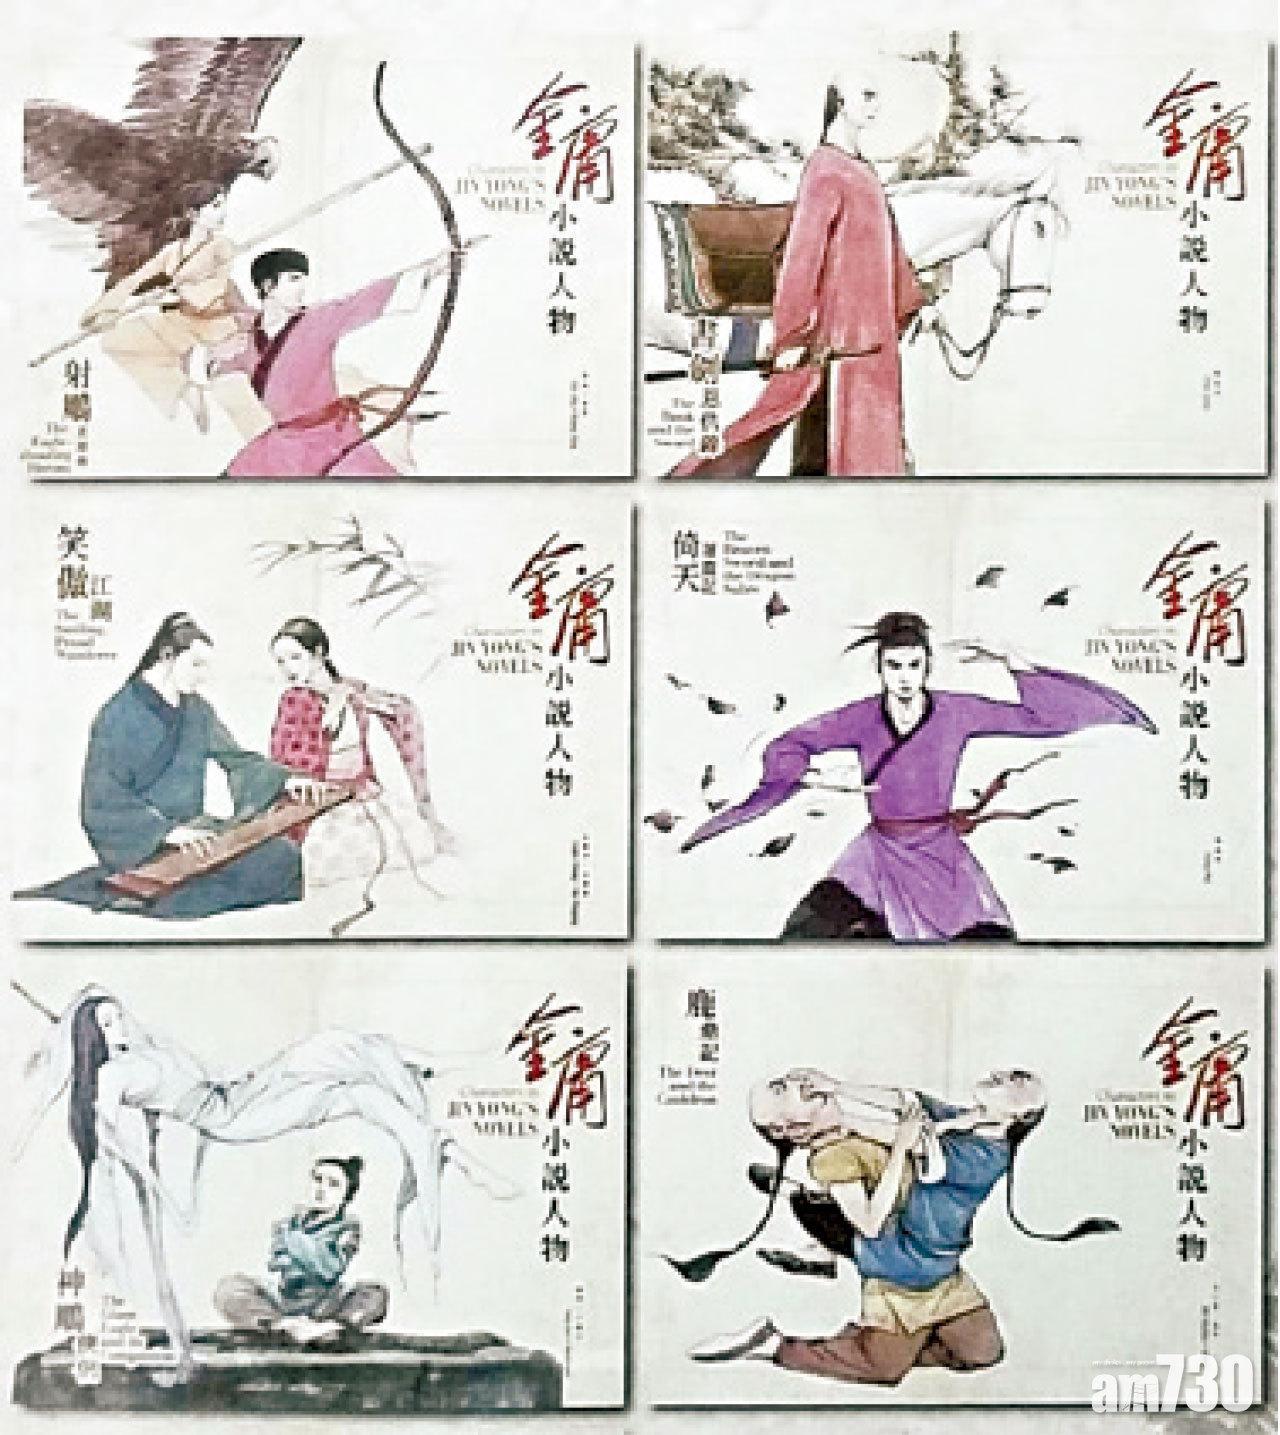 金庸
Characters in
JIN YONG'S
NOVELS
小說人物
射鵰
英雄傳
The
Eagle-
shooting
Heroes
金庸
Characters in
JIN YONG'S
NOVELS
小說人物
書劍恩仇錄
The
Book
and the
Sword
笑傲
江湖
The
Smiling,
Proud
Wanderer
金庸
Characters in
JIN YONG'S
NOVELS
小說人物
倚天
屠龍記
The
Heaven
Sword and
the Dragon
Sabre
金庸
Characters in
JIN YONG'S
NOVELS
小說人物
金庸
Characters in
JIN YONG'S
NOVELS
小說人物
神鵰
俠侶
The
Giant
Eagle
and its
Companion
鹿鼎記
The Deer
and the
Cauldron
金庸
Characters in
JIN YONG'S
NOVELS
小說人物
am730